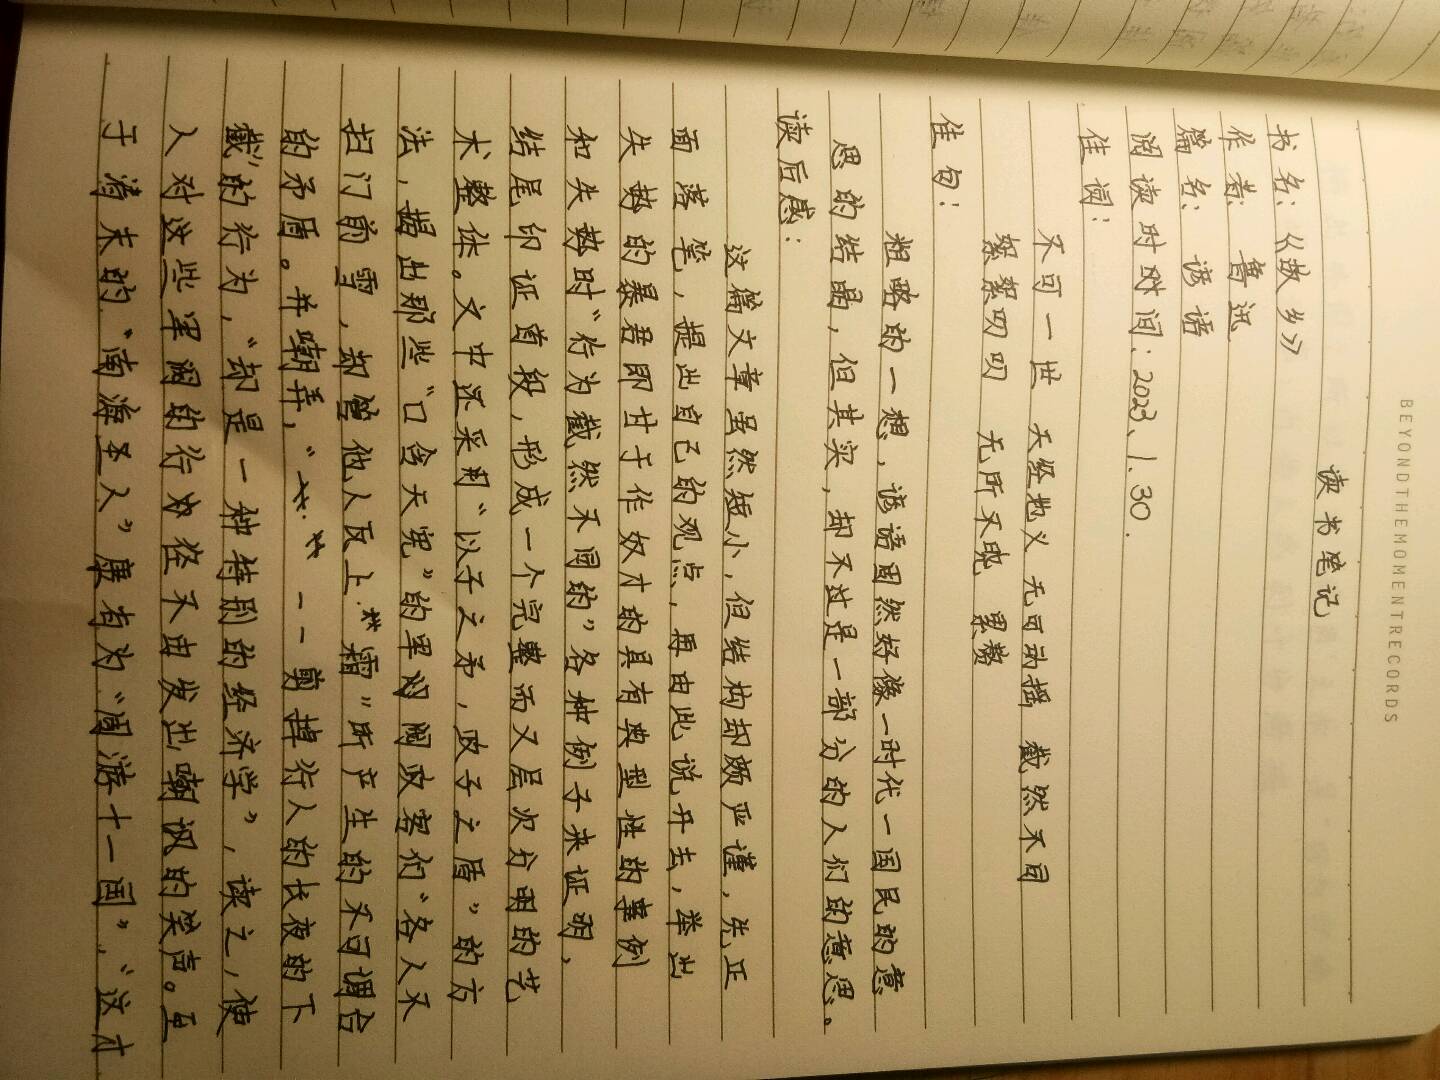 BEYONDTHEMOMENTRECORDS
读书笔记
书名：《故乡》
作者：鲁迅
篇名：谚语
阅读时时间：2023、1.30.
佳词：
不可一世 天经地义 无可动摇 截然不同
絮絮叨叨 无所不晓 累赘
佳句：
粗略的一想，谚语固然好像一时代一国民的意
思的结晶，但其实，却不过是一部分的人们的意思。
读后感：
这篇文章虽然短小，但结构却颇严谨，先正
面落笔，提出自己的观点，再由此说开去，举出
失势的暴君即甘于作奴才的具有典型性的事例
和失势时“行为截然不同的”各种例子来证明，
结尾印证首段，形成一个完整而又层次分明的艺
术整体。文中还采用“以子之矛，攻子之盾”的方
法，揭出那些“口含天宪”的军阀政客们“各人不
扫门前雪，却管他人瓦上霜”所产生的不可调合
的矛盾。并嘲弄，“一一剪掉行人的长夜的下
截”的行为，“却是一种特别的经济学”，读之，使
人对这些军阀的行径不由发出嘲讽的笑声。至
于清末的“南海圣人”康有为“周游十一国”，“这才